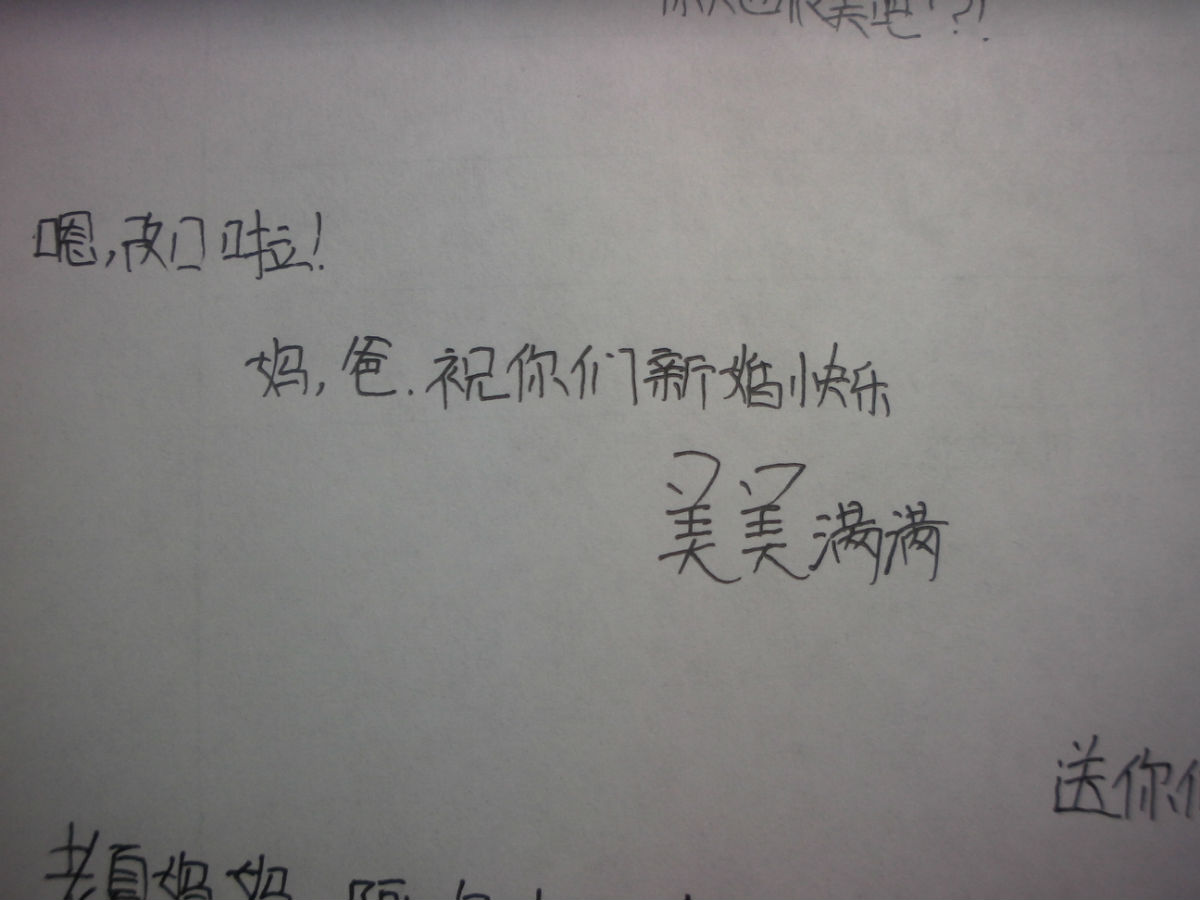 嗯,改口啦!
妈,爸.祝你们新婚快乐
美美满满
送你
老夏妈妈